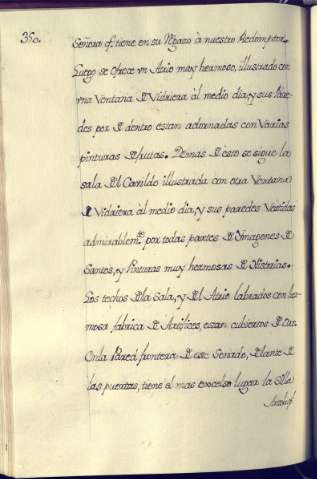 350.
Señora q̃ tiene en su Regazo à nuestro Redemptor.
Luego se ofrece vn Atrio muy hermoso, illustrado con
vna Ventana de Vidriera àl medio dia, y sus Pare-
des por de dentro estan adornadas con Varias
pinturas de frutas. Demas de esto se sigue la
sala del Cavildo illustrada con otra Ventana
de Vidriera àl medio dia, y sus paredes Vestidas
admirablemte. por todas partes de Ymagenes de
Santos, y Pinturas muy hermosas de Historias.
Los techos de la Sala, y del Atrio labrados con her-
mosa fabrica de Artifices, estan cubiertos de
En la Pared frontera de este Senado, delante de
las puertas, tiene el mas excelso lugar la Silla